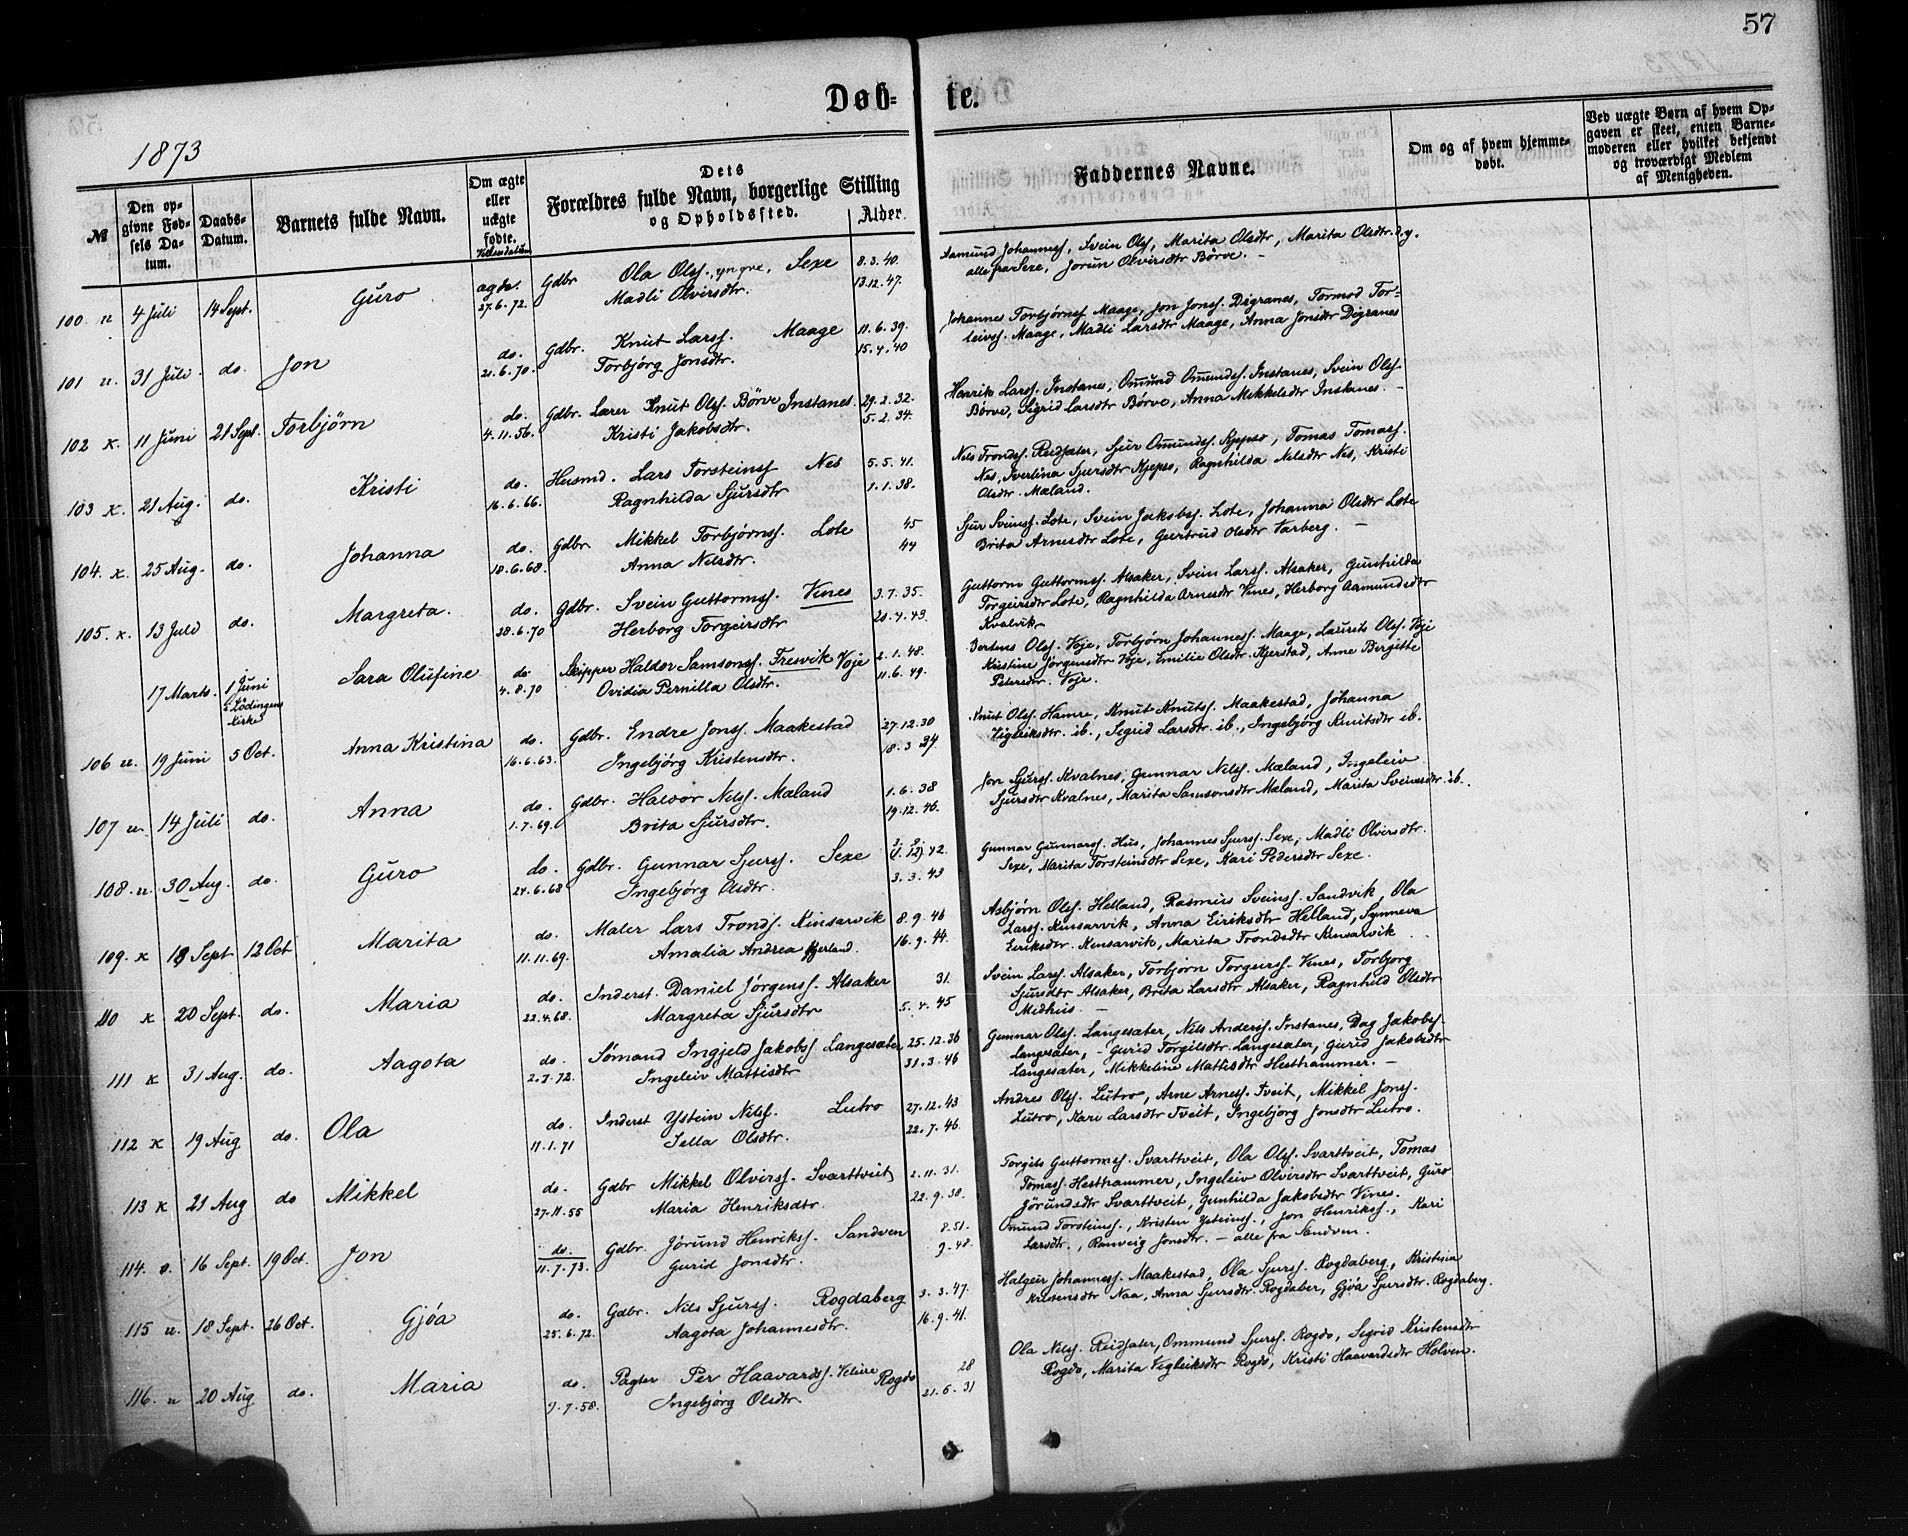 57
Døb- te.
1873
№
Den op-
givne Fød-
sels Da-
tum.
Daabs-
Datum.
Barnets fulde Navn.
Om ægte
eller
uægte
fødte.
Vielsesdatum
Dets
Forældres fulde Navn, borgerlige Stilling
og Opholdssted.
Alder.
Faddernes Navne.
Om og af hvem hjemme-
døbt.
Ved uægte Børn af hvem Op-
gaven er skeet, enten Barne-
moderen eller hvilket bekjendt
og troværdigt Medlem
af Menigheden.
100. u 4 Juli 14 Sept. Guro ægte. 27.6.72. Gdbr Ola Olss. yngre, Sexe 8.3.40.
Madli Olvirsdtr. 13.12.47.
Aamund Johanness, Svein Olss, Marita Olsdtr, Marita Olsdtr. d.y.
alle fra Sexe, Jorun Olvirsdtr Børve. -
101 u. 31 Juli. do. Jon do. 21.6.70. Gdbr. Knut Larss. Maage 11.6.39.
Torbjørg Jonsdtr. 15.4.40
Johannes Torbjørnss Maage, Jon Jonss. Digranes, Tormod Tor-
leivss. Maage, Madli Larsdtr Maage, Anna Jonsdtr Digranes
102 K. 11 Juni 21 Sept. Torbjørn do. 4.11.56. Gdbr. Lærer Knut Olss. Børve Instanes. 29.2.32.
Kristi Jakobsdtr. 5.2.34.
Henrik Larss. Instanes, Omund Omundss. Instanes, Svein Olss.
Børve, Sigrid Larsdtr Børve, Anna Mikkelsdtr Instanes. -
103 K. 21 Aug. do. Kristi do. 16.6.66. Husmd. Lars Torsteinss Nes 5.5.41.
Ragnhilda Sjursdtr 1.1.38.
Nils Trondss. Reidsæter, Sjur Omundss. Kjepso, Tomas Tomass.
Nes, Iverlina Sjursdtr Kjepso, Ragnhilda Nilsdtr Nes, Kristi
Olsdtr. Mæland.
104. K. 25 Aug. do. Johanna do. 18.6.68. Gdbr Mikkel Torbjørnss. Lote 45
Anna Nilsdtr. 44
Sjur Sveinss. Lote, Svein Jakobss. Lote, Johanna Olsdtr Lote
Brita Arnesdtr Lote, Gurtrud Olsdtr Varberg. -
105. K. 13 Juli do. Margreta. do. 28.6.70 Gdbr. Svein Guttormss. Vines 3.7.35.
Herborg Torgeirsdtr 20.4.43.
Guttorm Guttormss. Alsaker, Svein Larss. Alsaker, Gunhilda
Torgeirsdtr Lote, Ragnhilda Arnesdtr Vines, Herborg Aamundsdtr
Kvalvik
17 Marts. 1 Juni i Lödingens Kirke Sara Olufine do 4.8.70 Skipper Haldor Samsonss. Tresvik Voje 2.1.48.
Ovidia Pernilla Olsdtr. 11.6.49.
Bertens Olss. Voje, Torbjørn Johanness. Maage, Laurits Olss. Voje
Kristine Jørgensdtr Voje, Emilie Olsdtr. Kjerstad, Anne Birgitte
Petersdtr. Voje.
106 u. 19 Juni 5 Oct. Anna Kristina do. 16.6.63. Gdbr. Endre Jonss. Maakestad 27.12.30
Ingebjørg Kristensdtr. 18.3.34.
Knut Olss. Hamre, Knut Knutss. Maakestad, Johanna
Vigleiksdtr. ib., Sigrid Larsdtr. ib., Ingebjørg Knutsdtr ib.
107 u. 14 Juli do. Anna do. 1.7.69. Gdbr. Halvor Nilss. Mæland 1.6.38
Brita Sjursdtr. 19.12.46.
Jon Sjurss. Kvalnes, Gunnar Nilss. Mæland, Ingeleiv
Sjursdtr Kvalnes, Marita Samsonsdtr Mæland, Marita Sveinsdtr. ib.
108. u. 30 Aug. do. Guro do. 24.6.68 Gdbr. Gunnar Sjurss. Sexe 42.
Ingebjørg Olsdtr. 3.3.43
Gunnar Gunnarss. Hus, Johannes Sjurss. Sexe, Madli Olvirsdtr.
Sexe, Marita Torsteinsdtr Sexe, Kari Pedersdtr Sexe.
109. K 18 Sept 12 Oct Marita do. 11.11.69. Maler Lars Tronds. Kinsarvik 8.9.46
Amalia Andrea 16.9.44.
Asbjørn Olss. Helland, Rasmus Sveinss. Sandvik, Ola
Larss. Kinsarvik, Anna Eiriksdtr Helland, Synneva
Eiriksdtr. Kinsarvik, Marita Trondsdtr Kinsarvik
110 K 20 Sept. do. Maria do. 22.4.68. Inderst. Daniel Jørgenss. Alsaker 31.
Margreta Sjursdtr 5.4.45
Svein Larss. Alsaker, Torbjørn Torgeirss. Vines, Torbjørg
Sjursdtr Alsaker, Brita Larsdtr Alsaker, Ragnhild Olsdtr
Midhus. -
111 K 31 Aug. do. Aagota do. 2.7.72. Sømand Ingjeld Jakobss. Langesæter 25.12.36
Ingeleiv Mattisdtr 31.3.46
Gunnar Olss. Langesæter, Nils Anderss. Instanes, Dag Jakobss.
Langesæter, - Gurid Torgilsdtr. Langesæter, Gurid Jakobsdtr
Langesæter, Mikkeline Mattisdtr Hesthammer. -
112 K 19 Aug do. Ola do. 11.1.71 Inderst Ystein Nilss. Lutro 27.12.43
Sella Olsdtr. 22.7.46.
Andres Olss. Lutro, Arne Arness. Tveit, Mikkel Jonss.
Lutro, Kari Larsdtr Tveit, Ingebjørg Jonsdtr Lutro.
113 K 21 Aug do Mikkel do. 27.11.55 Gdbr Mikkel Olvirss. Svarttveit 2.11.31.
Maria Henriksdtr. 22.9.30.
Torgils Guttormss. Svarttveit, Ola Olss. Svarttveit, Tomas
Tomass. Hesthammer, Ingeleiv Olvirsdtr Svarttveit, Guro
Jörundsdtr Svarttveit, Gunhilda Jakobsdtr Vines.
114. o. 16 Sept. 19 Oct. Jon do. 11.7.73. Gdbr. Jörund Henrikss. Sandven 8.51.
Gurid Jonsdtr. 9.48.
Omund Torsteinss., Kristen Ysteinss., Jon Henrikss., Kari
Larsdtr., Ranveig Jonsdtr. - alle fra Sandven.
115 u. 18 Sept. 26 Oct. Gjóa do. 25.6.72. Gdbr. Nils Sjurss. Rogdaberg 3.3.47.
Aagota Johannesdtr. 16.9.41.
Halgeir Johanness. Maakestad, Ola Sjurss. Rogdaberg, Kristina
Kristensdtr Naa, Anna Sjursdtr. Rogdaber, Gjóa Sjursdtr. Rogdaberg.
116. u 20 Aug do. Maria do. 9.7.58. Pagter Per Haavardss. Velure Rogdo 28
Ingebjørg Olsdtr 21.6.31
Ola Nilss. Reidsater, Ommund Sjurss. Rogdo, Sigrid Kristensdtr
Rogdo, Marita Vigleiksdtr Rogdo, Kristi Haavardsdtr Holven.